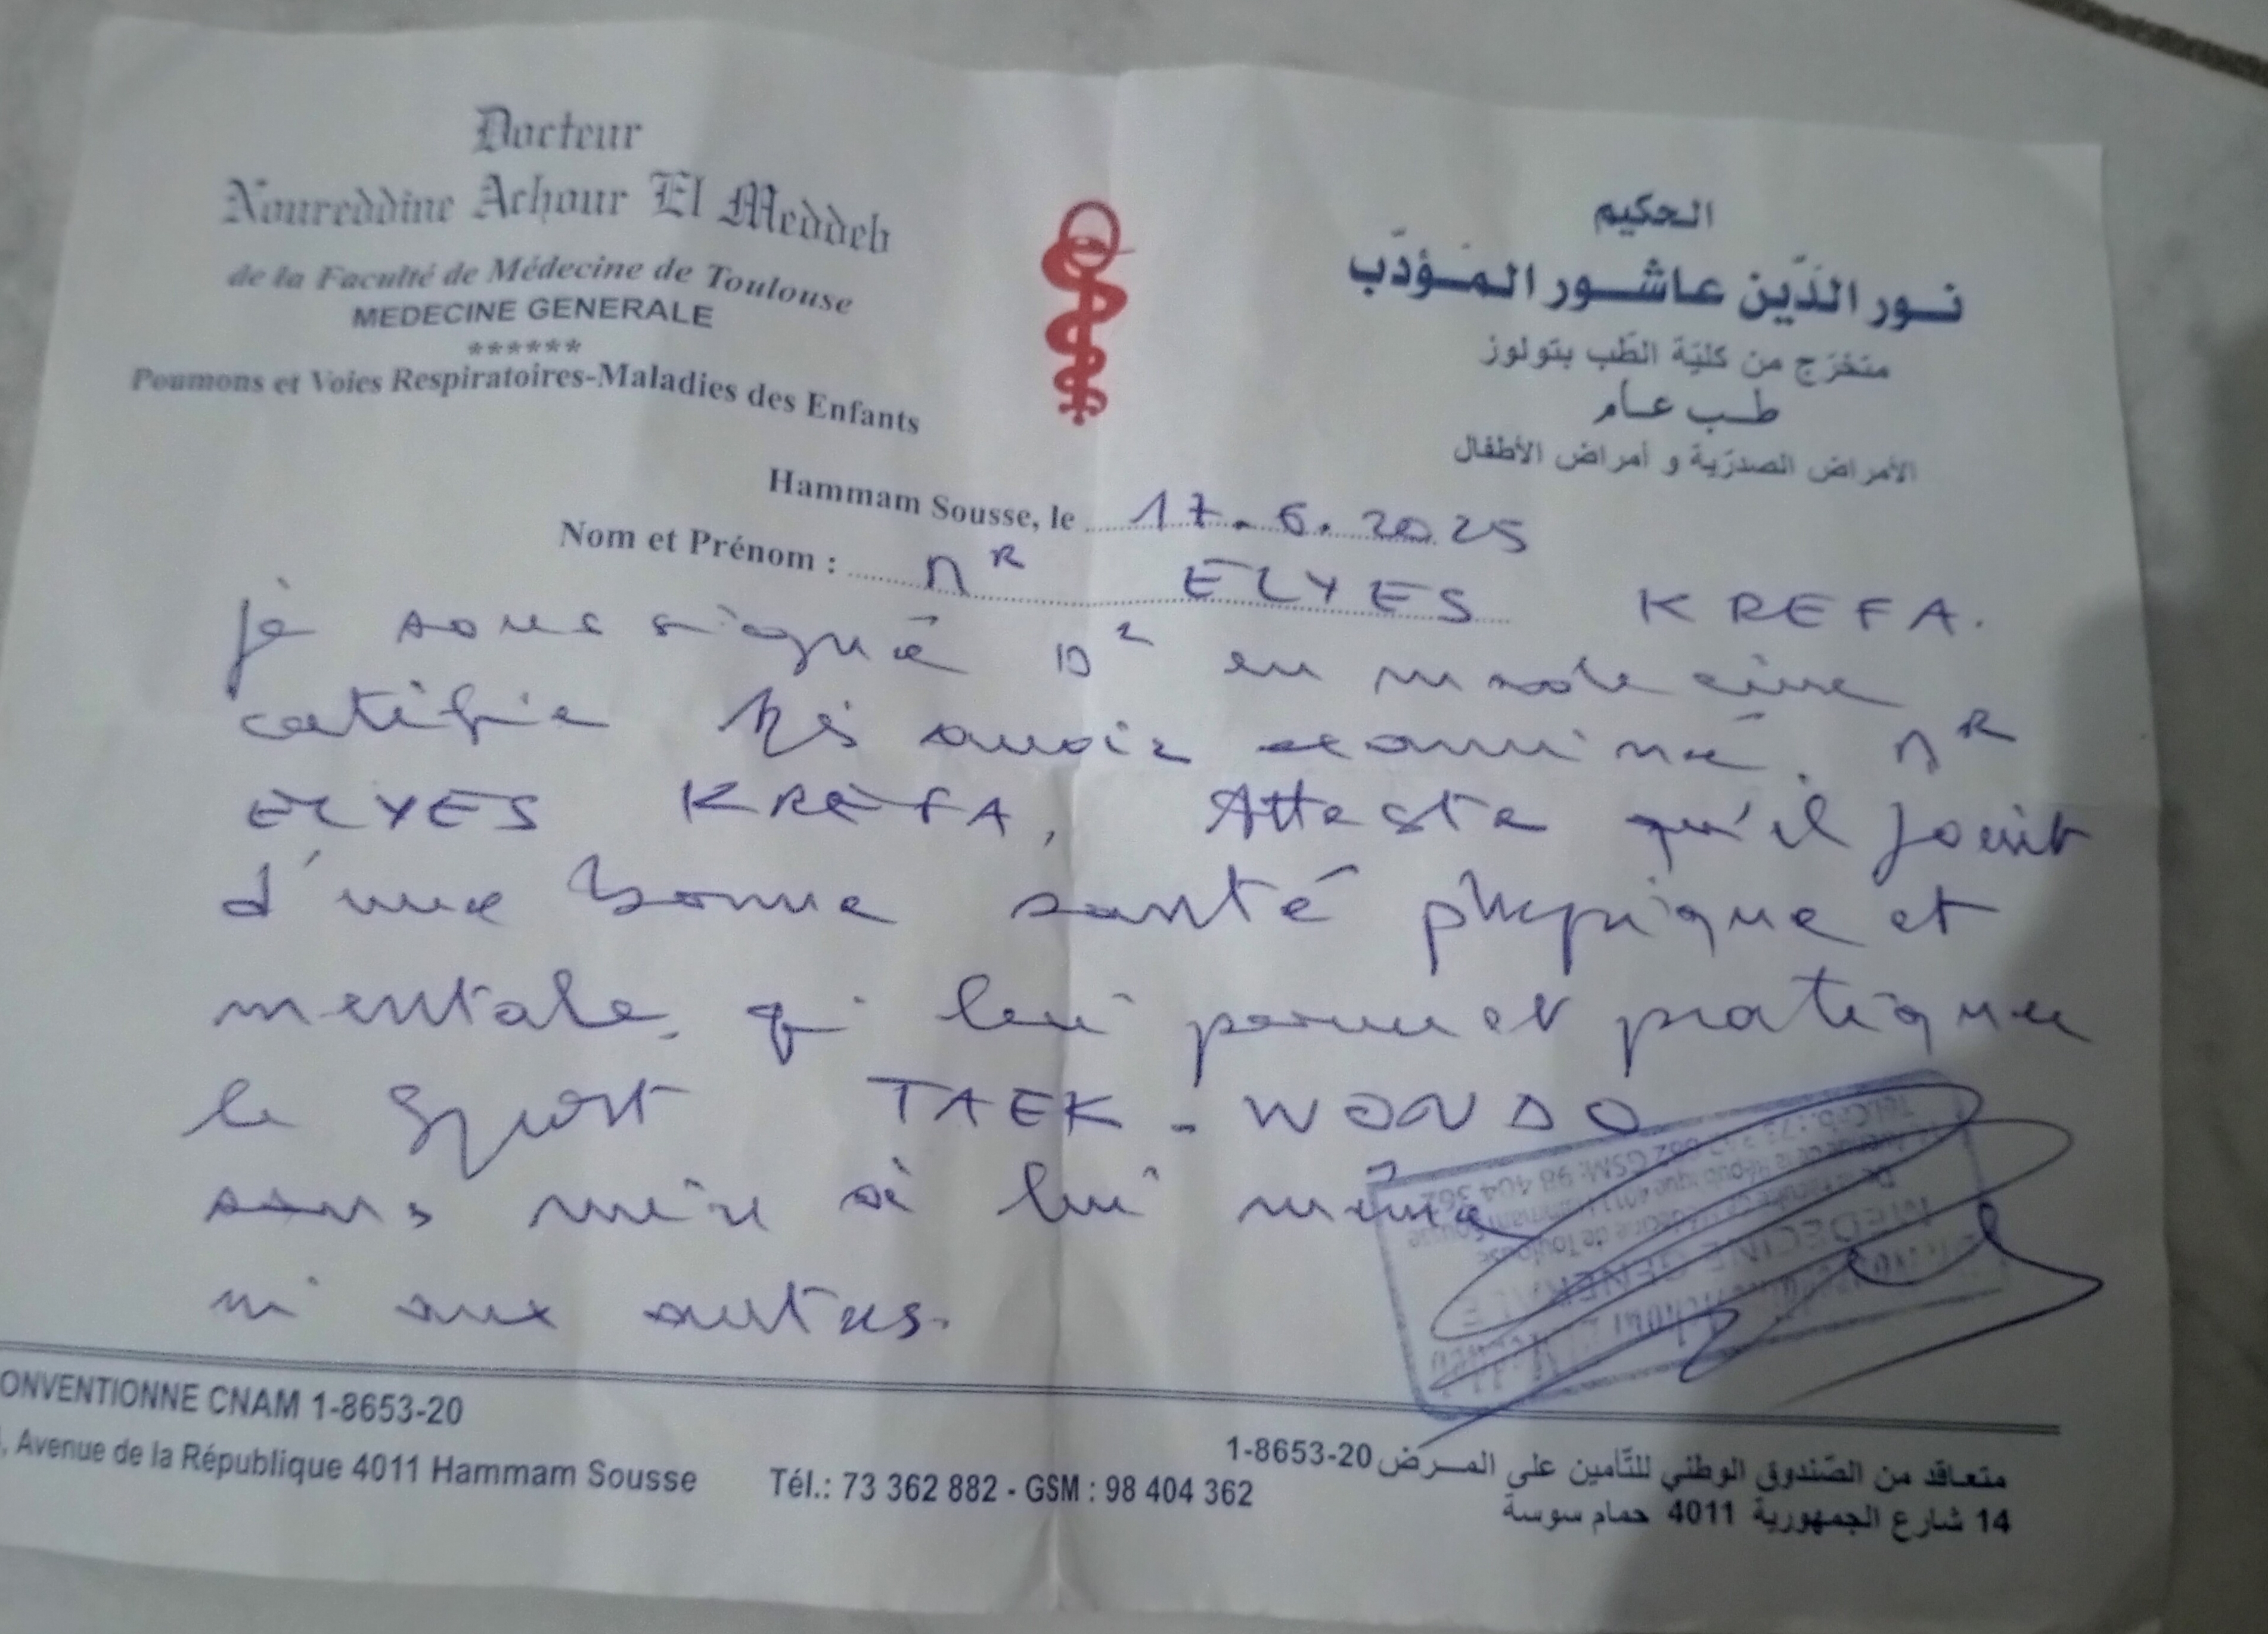 Docteur
Noureddine Achour El Meddeb
de la Faculté de Médecine de Toulouse
MEDECINE GENERALE
******
Poumons et Voies Respiratoires-Maladies des Enfants
الحكيم
نور الدّين عاشور المؤدّب
متخرّج من كليّة الطّب بتولوز
طب عام
الأمراض الصدريّة و أمراض الأطفال
Hammam Sousse, le 17.6.2025
Nom et Prénom : Mr ELYES KREFA.
je soussigné Dr en medecine
certifie avoir examiné. Mr
ELYES KREFA, Atteste qu'il jouit
d'une bonne santé physique et
mentale, qi lui permet pratiquer
le Sport TAEK-WONDO
sans nuire à lui même
ni aux autres.
MEDECINE GENERALE
de Toulouse
GSM: 98 404 362
ONVENTIONNE CNAM 1-8653-20
, Avenue de la République 4011 Hammam Sousse
Tél.: 73 362 882 - GSM : 98 404 362
متعاقد من الصّندوق الوطني للتّأمين على المرض 20-8653-1
14 شارع الجمهورية 4011 حمام سوسة